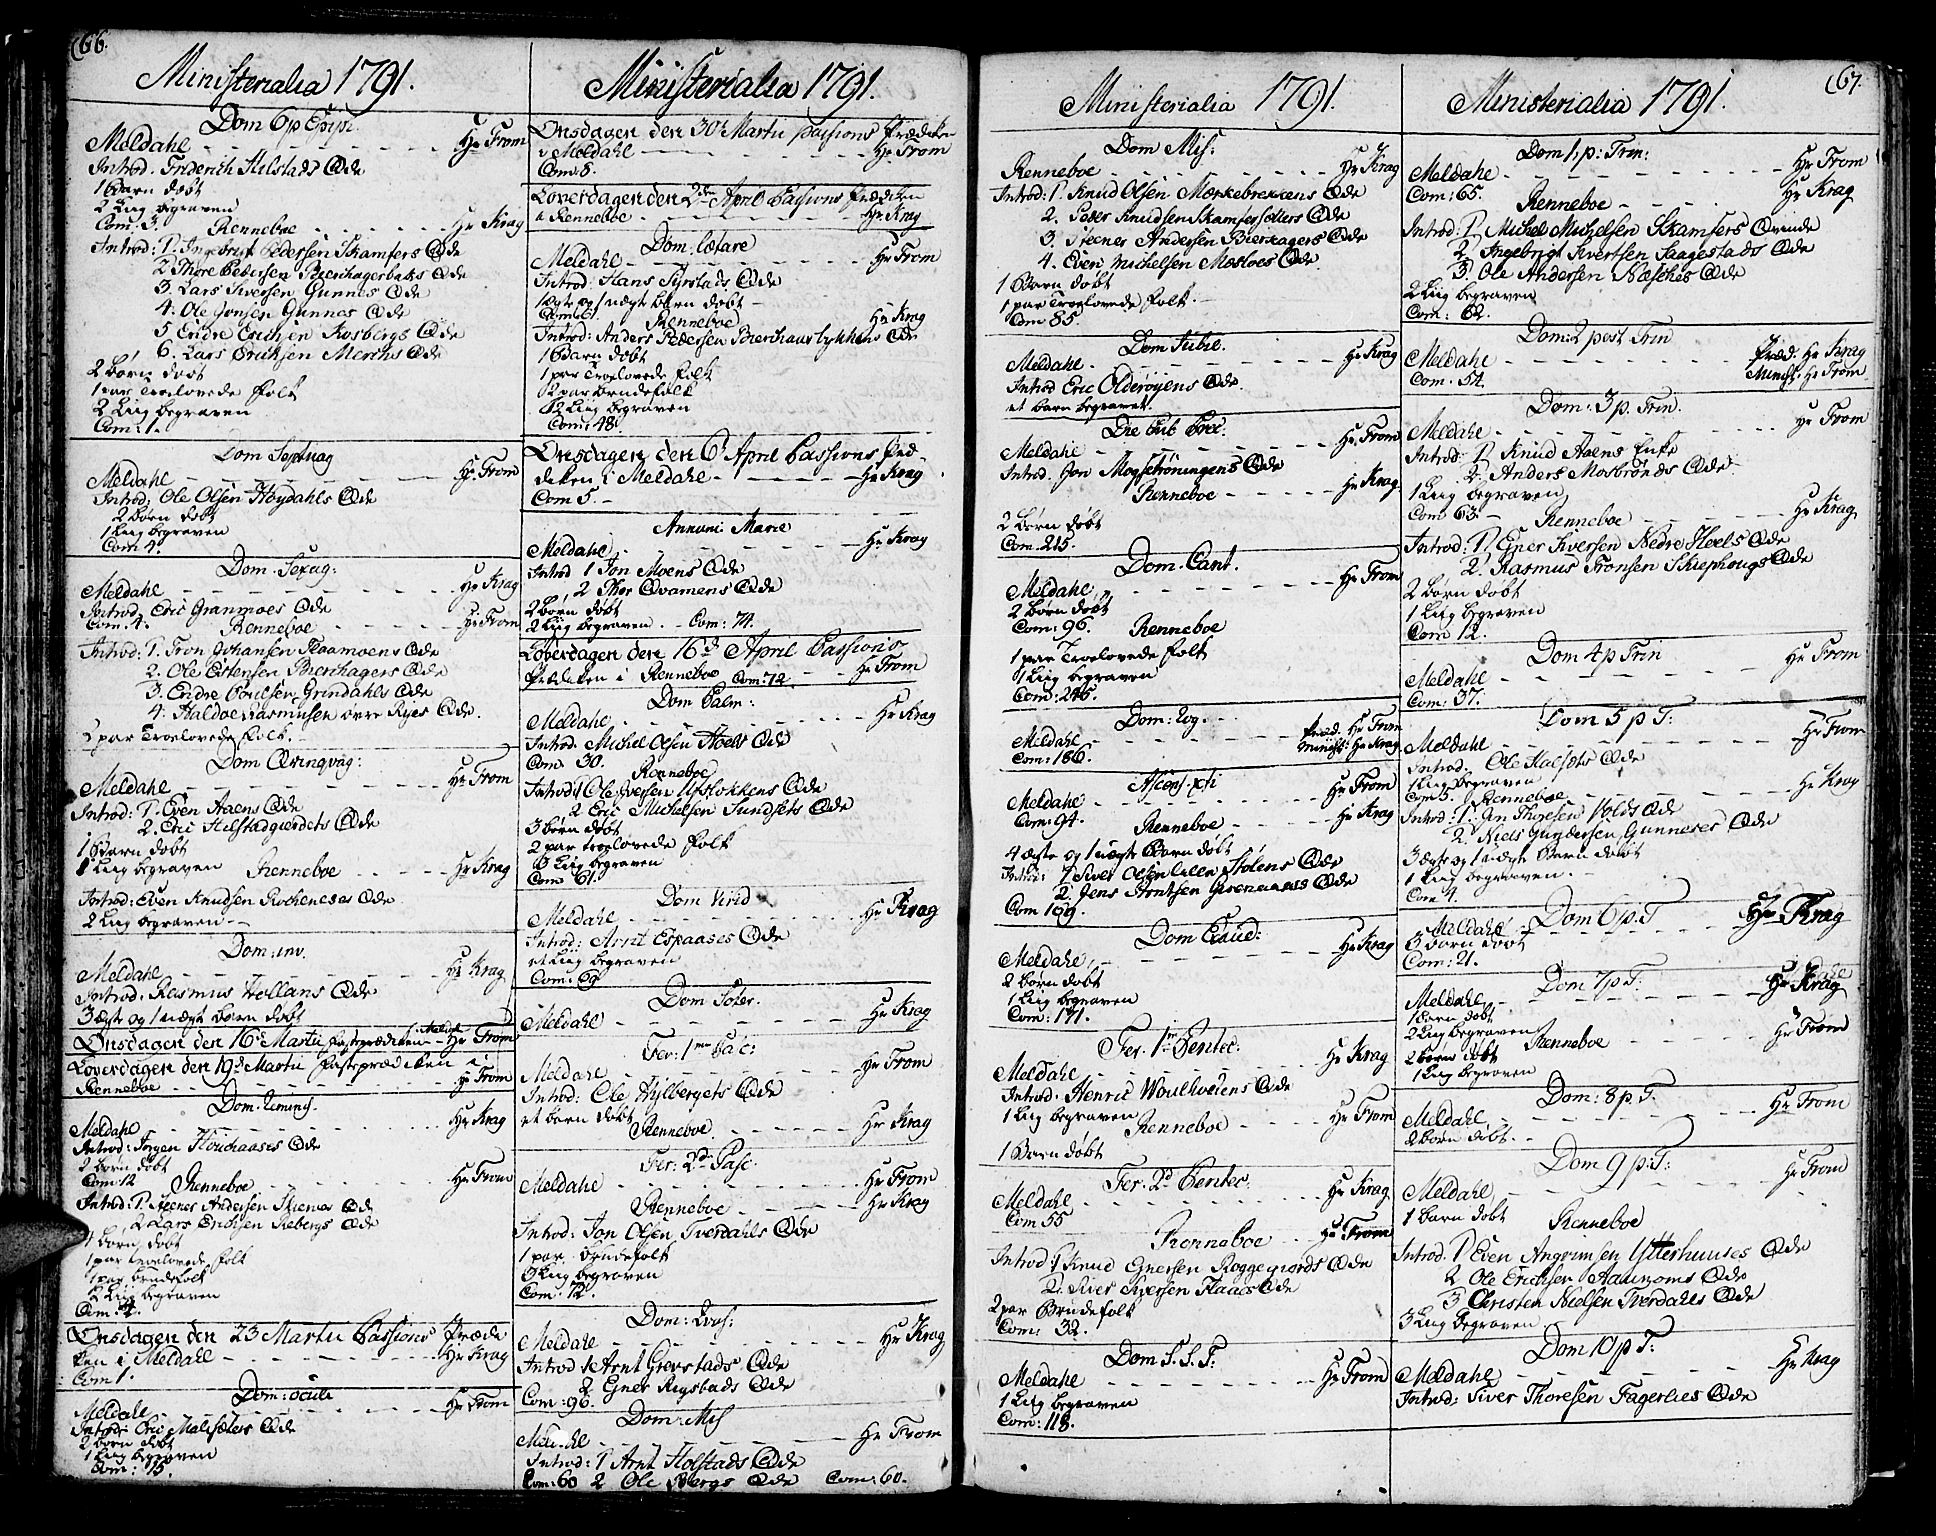 66.
Ministerialia 1791.
Dom 6 p Epiph.
Meldahl - - - Hr From
Introd. Friderich Hilstads Qde
1 Barn døbt
2 Liig begraven
Com: 3. Renneboe - - - Hr Krag
Introd: 1. Ingebrigt Pedersen Skamfers Qde
2 Thore Pedersen Qde
3. Lars Iversen Gunnes Qde
4. Ole Jonsen Gunnes Qde
5 Endre Erichsen Rosbergs Qde
6. Lars Eriksen Merchs Qde
2 børn døbt
1 par Troelovede folk
2 Liig begraven
Com: 1.
Dom Septuag
Meldahl - - - Hr From
Introd: Ole Olsen Høydahls Qde
2 børn døbt
1 Liig begraven
Com 4.
Dom. Sexag:
Meldahl - - - Hr Krag
Introd. Eric Granmoes Qde
Com: 4. Renneboe - - - Hr From
Introd: 1. Tron Johansen Flaamoens Qde
2. Ole Estensen Bierchagers Qde
3. Endre Poulsen Grindahls Qde
4. Haldoe Rasmusen øvre Ryes Qde.
par Troelovede folk.
Dom Qvinqvag:
Meldahl - - - Hr From
Introd: 1. Even Aaens Qde
2. Eric Hilstadgierdets Qde
1 Barn døbt
1 Liig begraven Renneboe - - - Hr Krag
Introd: Even Knudsen Qde
2 Liig begraven - -
Dom: inv.
Meldahl - - - Hr Krag
Introd: Rasmus Hollans Qde
3 ægte og 1 uægte børn døbt
Onsdagen den 16d Martii fastprædiken i Meldahl - Hr From
Løverdagen den 19d Martii fastprædiken i
Renneboe - - - Hr From
Dom. Reminis.
Meldahl - - - Hr Krag
Introd: Jørgen Houchaases Qde
2 børn døbt
Com 12 Renneboe - - - Hr From
Introd: 1. Steenes Andersen Skienes Qde
2 Lars Erichsen Rebergs Qde
børn døbt
1 par Troelovede folk
1 par brudefolk
2 Liig begraven
Com: 4.
Onsdagen den 23 Martii Passions Præde
ken i Meldahl - - - Hr Krag
Com 1.
Dom: oculi
Meldahl - - - Hr From
Introd: Eric Malisæters Qde
2 børn døbt
1 Liig begraven
Com: 15.
Ministerialia 1791.
Onsdagen den 30d Martii passions Prædiken
i Meldahl - - - Hr From
Com: 8.
Løverdagen den 2den April Passions Prædiken
i Renneboe - - - Hr Krag
Dom: lætare
Meldahl - - - Hr From
Introd: Hans Syrstads Qde
1 ægte og 1 uægte børn døbt -
Com: 6. Renneboe - Hr Krag
Introd: Anders Pedersen Qde
1 Barn døbt
1 par Troelovede folk
2 par brudefolk
2 Liig begraven
Com: 48.
Onsdagen den 6d April Passions Præ-
deken i Meldahl - - - Hr Krag
Com 5. -
Annunc: Mariæ
Meldahl - - - Hr Krag
Introd 1 Jon Moens Qde
2 Thor Qvamens Qde
2 børn døbt
2 Liig begraven. - Com: 74.
Løverdagen den 16d April Passions
Prædeken i Renneboe Com: 72 - - Hr From
Dom Palm:
Meldahl - - - Hr Krag
Introd. Michel Olsen Hoels Qde
Com: 30. Renneboe
Introd: 1 Ole Iversen Ufslokkens Qde
2 Eric Michelsen Sundsets Qde
3 børn døbt
2 par troelovede folk
3 Liig begraven
Com: 61.
Dom Virid
Meldahl - - - Hr Krag
Introd: Arnt Espaases Qde
et Liig begraven
Com: 69
Dom Soter.
Meldahl - - - Hr Krag
Fer: 1ma Pac:
Meldahl - - - Hr From
Introd: Ole Hylbergets Qde
et børn døbt
Renneboe - - - Hr Krag
Fer: 2d Pasc:
Meldahl - - - Hr From
Renneboe - - - Hr Krag
Introd: Jon Olsen Tverdahls Qde
1 par brudefolk
3 Liig begraven
Com: 12.
Dom: Qvas:
Meldahl - - - Hr Krag
Introd 1 Arnt Grevstads Qde
2 Gner Rigstads Qde
Com: 96.
Dom: Mis
Meldahl - - - Hr From
Introd: 1 Arnt Holstads Qde
Com: 60 2 Ole Bergs Qde Com: 60.
Ministerialia 1791.
Dom Mis:
Renneboe - - - Hr Krag
Introd: 1. Knud Olsen Mærkebrekkens Qde
2. Peder Knudsen Skamfersæters Qde
3. Steenes Andersen Bierkagers Qde
4. Even Michelsen Mosloes Qde.
1 Barn døbt
1 par Troelovede folk. -
Com 85.
Dom Jubil.
Meldahl - - - Hr Krag
Introd Eric Olderøyens Qde.
et barn begravet.
Die Sub Prec.
Meldahl - - - Hr From
Introd. Jon Mogsetrøningens Qde
Renneboe - - - Hr Krag
2 børn døbt
Com: 215.
Dom: Cant.
Meldahl - - - Hr From
2 børn døbt
Com: 96. Renneboe
1 par Troelovede folk
1 Liig begraven
Com: 245.
Dom: Rog. - -
Meldahl - - - Præd: Hr From
Minist: Hr Krag
Com: 186.
Ascens. xti
Meldahl - - - Hr From
Com: 94. Renneboe - - - Hr Krag
4 ægte og 1 uægte Barn døbt
Introd: 1 Siver Olsen Lillen Stølens Qde
2. Jens Arntsen Grenaaes Qde
Com 109.
Dom Exaud:
Meldahl - - - Hr Krag
2 børn døbt
1 Liig begraven
Com: 171.
Fer. 1ma Pentec:
Meldahl - - - Hr Krag
Introd: Henric Woulhodens Qde
1 Liig begraven - - - Hr From
Renneboe
1 Barn døbt
Fer. 2d Pentec.
Meldahl - - - Hr Krag
Com 55
Renneboe - - Hr From
Introd: 1 Knud Gnersen Roggegiords Qde
2. Siver Iversen Flaas Qde
2 par Brudefolk
Com: 32.
Dom S. S. T:
Meldahl - - - Hr From
1 Liig begraven
Com: 118.
67.
Ministerialia 1791.
Dom 1. p: Trin:
Meldahl - - - Hr From
Com: 65. Renneboe - - - Hr Krag
Introd: 1. Michel Michelsen Skamfers Qvinde
2. Ingebrigt Sivertsen Saagestads Qde
3. Ole Andersen Næschos Qde
2 Liig begraven
Com: 62.
Dom: 2 post Trin
Meldahl - - - Præd: Hr Krag
Minist: Hr From
Com. 54.
Dom: 3 p. Trin.
Meldahl - - - Hr From
Introd: 1 Knud Aaens Enke
2. Anders Mosbrønds Qde
1 Liig begraven
Com 63. - Renneboe - - - Hr Krag
Introd: 1. Gner Siversen Nedre Heels Qde
2. Rasmus Tronsen Skiephougs Qde
2 børn døbt
1 Liig begraven
Com 12.
Dom 4 p Trin
Meldahl - - - Hr From
Com: 37.
Dom 5 p T:
Meldahl - - - Hr From
Introd: Ole Halsæts Qde
1 Liig begraven
Com 3. Renneboe - - - Hr Krag
Introd: 1. Jon Thoresen Volds Qde
2. Niels Gundersen Gunneses Qde
3 ægte og 1 uægte Barn døbt
1 Liig begraven. -
Com 4.
Dom 6 p. T
Meldahl - - - Hr Krag
6 børn døbt
Com: 21.
Dom 7 p T:
Meldahl - - - Hr Krag
1 Barn døbt
2 Liig begraven
Renneboe - - - Hr From
2 børn døbt
1 Liig begraven
Dom: 8 p. T.
Meldahl - - - Hr From
2 børn døbt. -
Dom 9 p: T:
Meldahl - - - Hr From
1 barn døbt
Renneboe
Introd. 1 Even Angrimsen Ytterhuuses Qde
2 Ole Erichsen Aamoms Qde
3 Christen Nielsen Tverdahls Qde
3 Liig begraven
Dom 10 p T:
Meldahl - - - Hr Krag
Introd: Siver Thoresen Fagerlies Qde